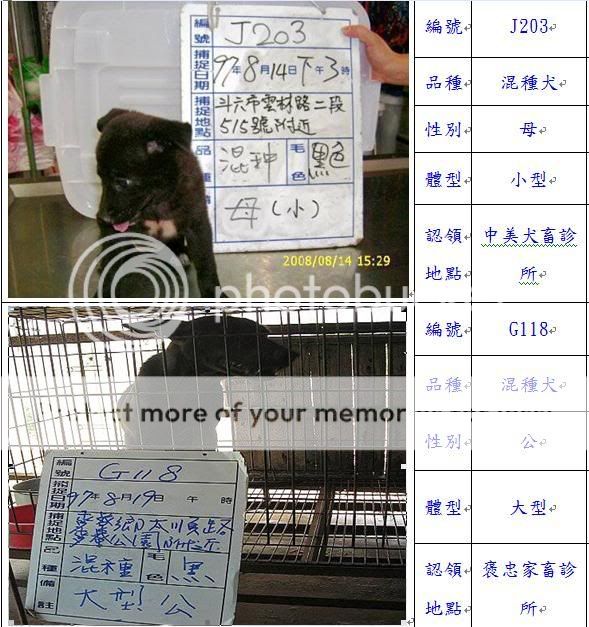 編號 J203
捕捉日期 97年8月14日下午3時
捕捉地點 斗六市雲林路二段
515號附近
品種 混种 毛色 黑色
備 母(小)
2008/08/14 15:29
編號 J203
品種 混種犬
性別 母
體型 小型
認領地點 中美犬畜診所
photobucket
編號 G118
捕捉日期 97年8月19日 午 時
捕捉地點 鄉
公園附近
品種 混種 毛色 黑
備註 大型 公
編號 G118
品種 混種犬
性別 公
體型 大型
認領地點 褒忠家畜診所
more of your memor